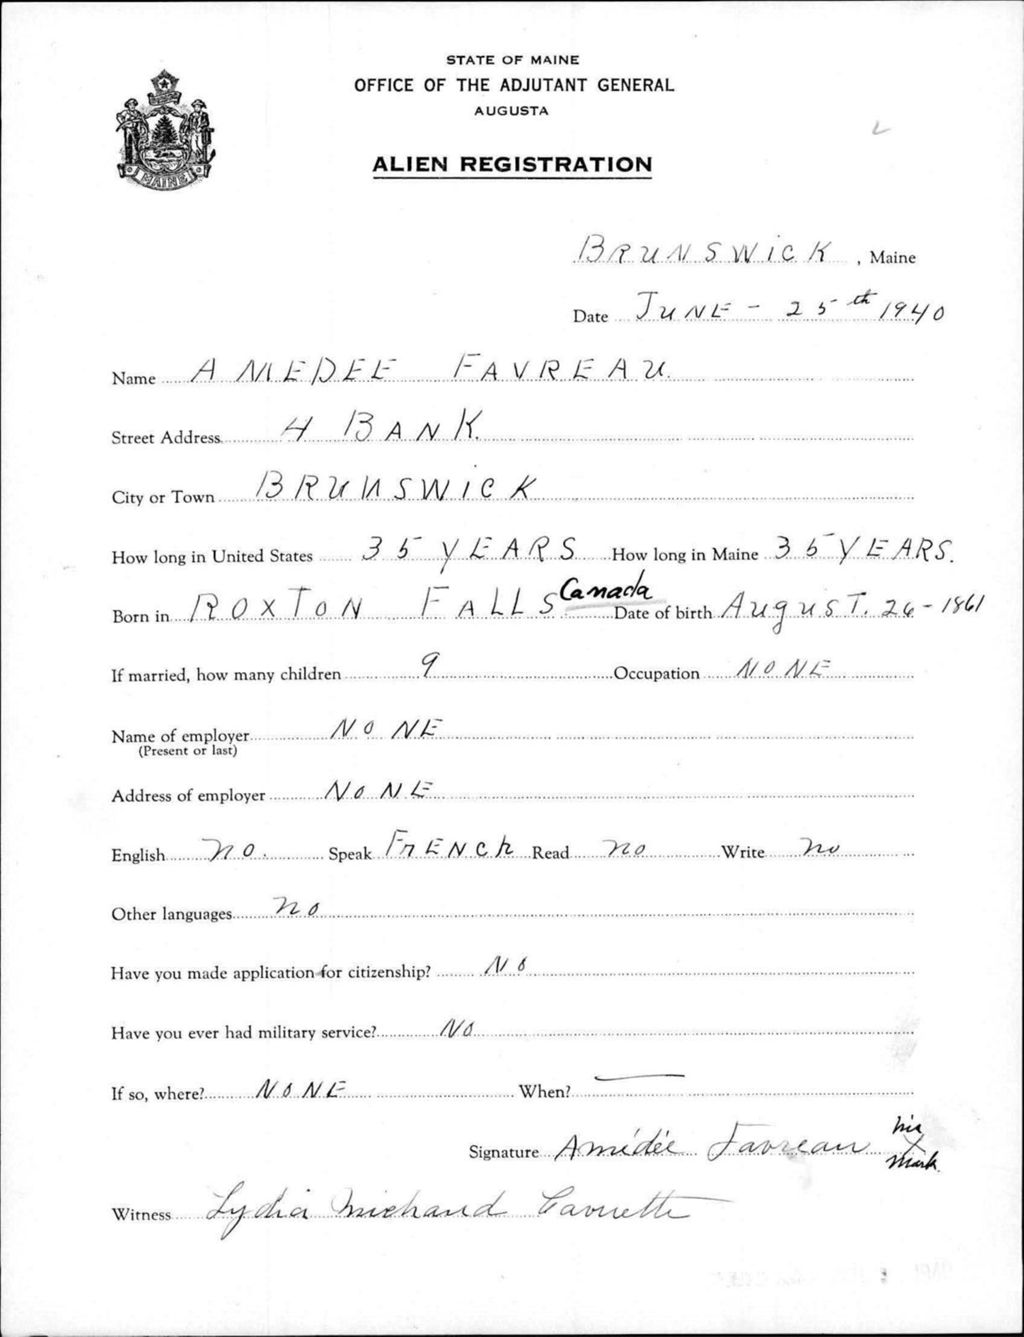 STATE OF MAINE
OFFICE OF THE ADJUTANT GENERAL
AUGUSTA
ALIEN REGISTRATION
MAINE
BRUNSWICK, Maine
Date JUNE - 25th 1940
Name AMEDEE FAVREAU
Street Address 4 BANK.
City or Town BRUNSWICK
How long in United States 35 YEARS How long in Maine 35 YEARS.
Born in ROXTON FALLS Canada Date of birth AuguST. 26 - 1861
If married, how many children 9 Occupation NONE
Name of employer NONE
(Present or last)
Address of employer NONE
English no. Speak FrENch Read no Write no
Other languages no
Have you made application for citizenship? NO
Have you ever had military service? No
If so, where? NONE When? —
Signature Amédée Favreau his X mark
Witness Lydia Michaud